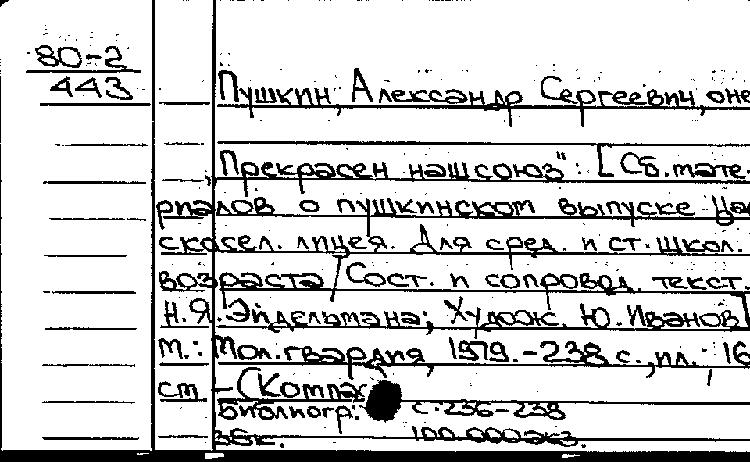 80-2
443
Пушкин, Александр Сергеевич, о не
Прекрасен наш союз": [Сб. мате-
риалов о пушкинском выпуске Цар
скосел. лицея. Для сред. и ст. школ.
возраста / Сост. и сопровод. текст.
Н.Я. Эйдельмана; Худож. Ю. Иванов]
М.: Мол. гвардия, 1979. - 238 с., ил.; 16
см - (Компас
Библиогр.: с. 236-238
36к. 100.000 экз.